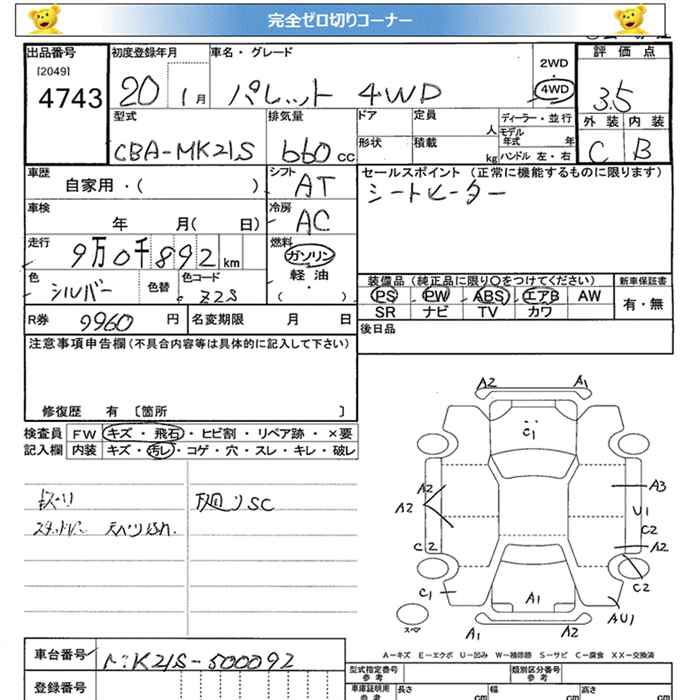 完全ゼロ切りコーナー
出品番号
[2049]
4743
初度登録年月
20 1月
車名・グレード
パレット 4WD
2WD
・
4WD
評価点
3.5
外装 内装
C B
型式
CBA-MK21S
排気量
660 cc
ドア
定員
人
形状
積載
kg
ディーラー・並行
モデル年式 年
ハンドル 左・右
車歴
自家用・( )
シフト
AT
セールスポイント (正常に機能するものに限ります)
シートヒーター
車検
年 月( 日)
冷房
AC
走行
9万0千892km
燃料
ガソリン
軽油
( )
色
シルバー
色替
色コード
Z2S
装備品 (純正品に限り〇をつけてください)
PS PW ABS エアB AW
SR ナビ TV カワ
新車保証書
有・無
R券 9960 円
名変期限 月 日
後日品
注意事項申告欄(不具合内容等は具体的に記入して下さい)
修復歴 有 〔箇所 〕
検査員記入欄
FW キズ・飛石・ヒビ割・リペア跡・×要
内装 キズ・汚レ・コゲ・穴・スレ・キレ・破レ
下廻りSC
A2 A1
C1
A2
A2
C2
C1
A3
U1
C2
A2
C2
A1
AU1
A1 A2
スペア
A-キズ E-エクボ U-凹み W-補修跡 S-サビ C-腐食 XX-交換済
車台番号
MK21S-500092
登録番号
型式指定番号
参考
類別区分番号
参考
車庫証明用
参考
長さ cm
幅 cm
高さ cm